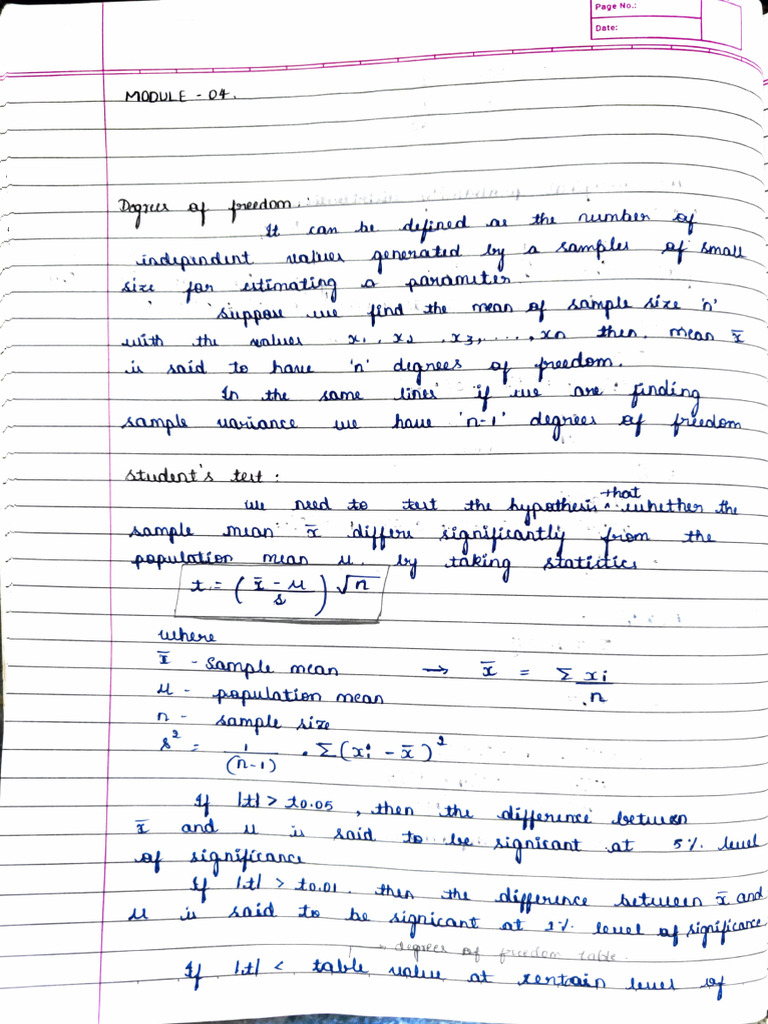 Page No.:
Date:
MODULE - 04.
Degrees of freedom.
It can be defined as the number of
independent values generated by a samples of small
size for estimating a parameter.
Suppose we find the mean of sample size 'n'
with the values x1, x2, x3, ...., xn then mean x̄
is said to have 'n' degrees of freedom.
In the same lines if we are finding
sample variance we have 'n-1' degrees of freedom
Student's test :
we need to test the hypothesis ^that whether the
sample mean x̄ differs significantly from the
population mean μ. by taking statistics
t = (x̄ - μ / s) √n
where
x̄ - sample mean → x̄ = Σ xi / n
μ - population mean
n - sample size
s² = 1/(n-1) . Σ(xi - x̄)²
If |t| > t0.05, then the difference between
x̄ and μ is said to be signicant at 5% level
of significance
If |t| > t0.01. then the difference between x̄ and
μ is said to be signicant at 1% level of significance
→ degrees of freedom table
If |t| < table value at certain level of